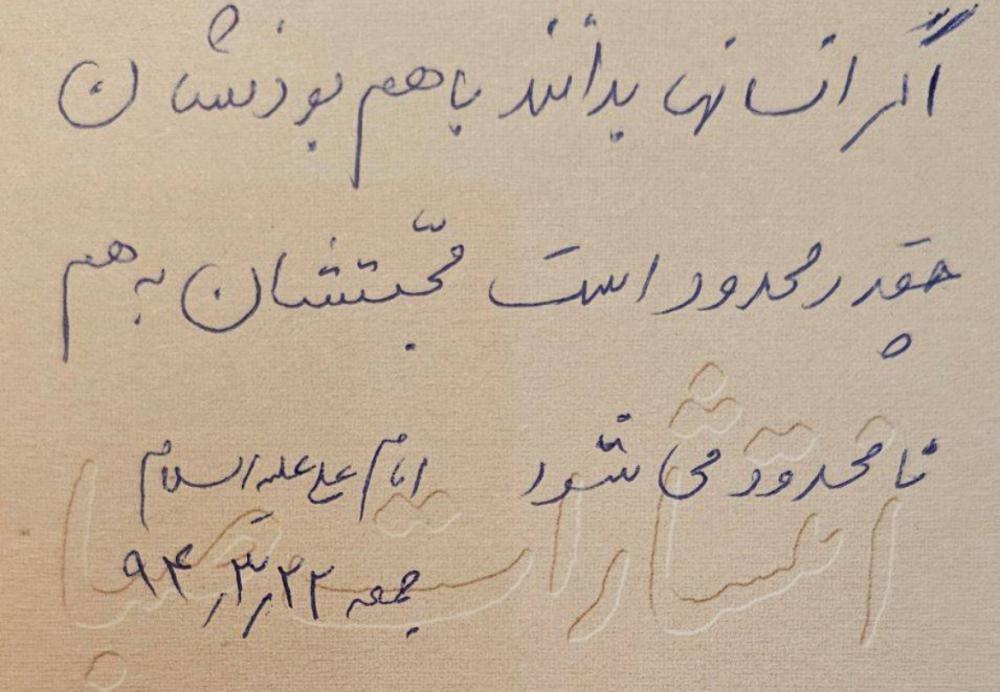 اگر انسانها بدانند باهم بودنشان
چقدر محدود است محبّتشان به هم
نامحدود می شود امام علی علیه السلام
جمعه ۹۴٫۳٫۲۲
انتشارات